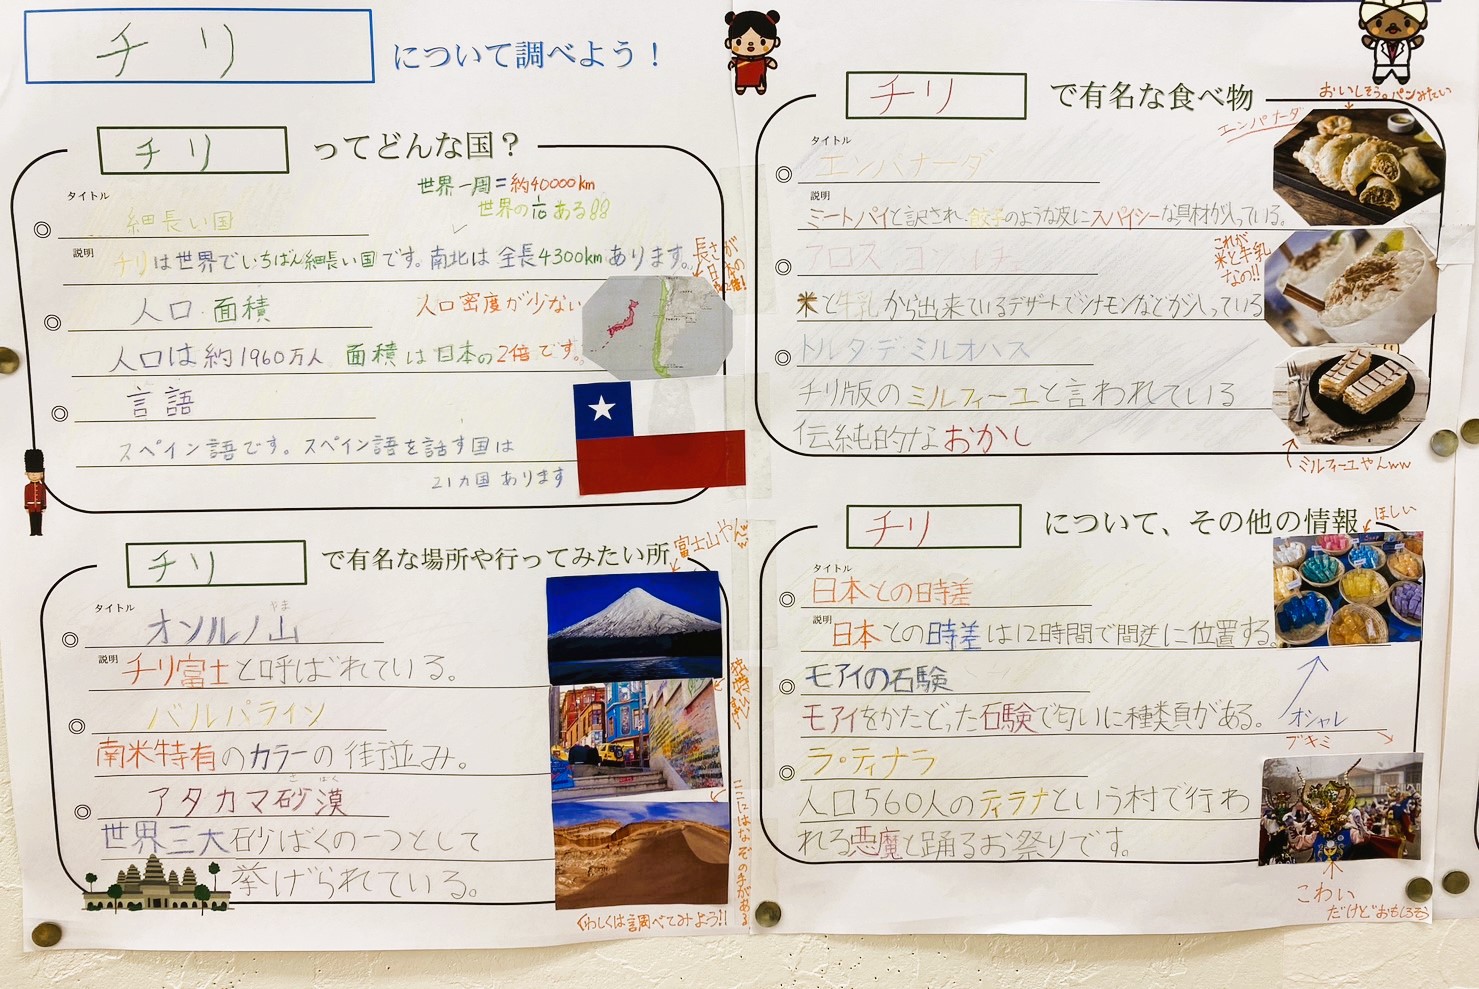 チリ について調べよう！
チリ ってどんな国？
世界一周=約40000km
世界の1/10ある!!
タイトル
◎ 細長い国
説明
チリは世界でいちばん細長い国です。南北は全長4300kmあります。
長さが日本の
◎ 人口・面積
人口密度が少ない
人口は約1960万人 面積は日本の2倍です。
◎ 言語
スペイン語です。スペイン語を話す国は
21カ国あります
チリ で有名な場所や行ってみたい所
富士山やん
タイトル
◎ オソルノ山
やま
説明
チリ富士と呼ばれている。
◎ バルパライソ
南米特有のカラーの街並み。
◎ アタカマ砂漠
さばく
世界三大砂ばくの一つとして
挙げられている。
ここにはなぞの手がある
くわしくは調べてみよう!!
チリ で有名な食べ物
おいしそう。パンみたい
エンパナーダ
タイトル
◎ エンパナーダ
説明
ミートパイと訳され、餃子のような皮にスパイシーな具材が入っている。
◎ アロス コン レチ
これが米と牛乳なの!!
米と牛乳から出来ているデザートでシナモンなどが入っている
◎ トルタ・デ・ミルオハス
チリ版のミルフィーユと言われている
伝統的なおかし
ミルフィーユやんww
チリ について、その他の情報
ほしい
タイトル
◎ 日本との時差
説明
日本との時差は12時間で間逆に位置する。
◎ モアイの石験
モアイをかたどった石験で匂いに種類がある。
オシャレ
ブキミ
◎ ラ・ティナラ
人口560人のティラナという村で行わ
れる悪魔と踊るお祭りです。
こわい
だけどおもしろそう